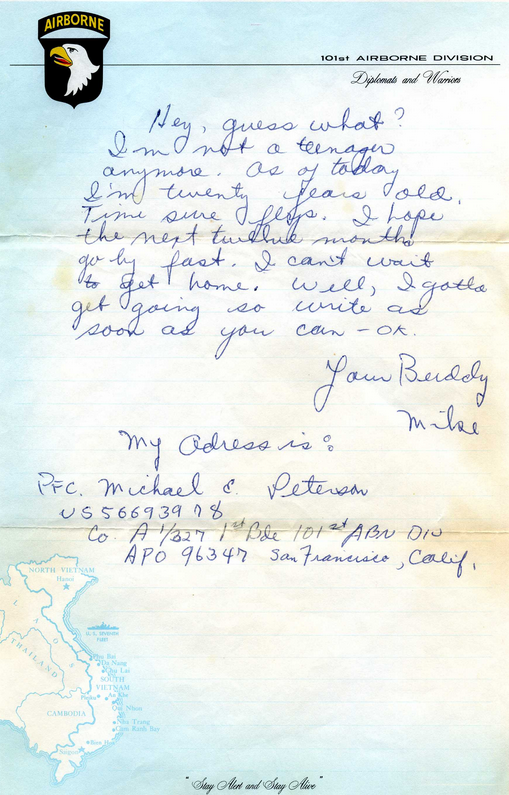 AIRBORNE
101st AIRBORNE DIVISION
Diplomats and Warriors
Hey, guess what?
I'm not a teenager
anymore. As of today
I'm twenty years old.
Time sure flys. I hope
the next twelve months
go by fast. I can't wait
to get home. Well, I gotta
get going so write as
soon as you can - OK.
Your Buddy
Mike
My Adress is:
PFC. Michael E. Peterson
US56693978
Co. A 1/327 1st Bde 101st ABN DIV
APO 96347 San Francisco, Calif.
NORTH VIETNAM
Hanoi
LAOS
THAILAND
Phu Bai
Da Nang
Chu Lai
SOUTH
VIETNAM
An Khe
Qui Nhon
CAMBODIA
Nha Trang
Cam Ranh Bay
Saigon
"Stay Alert and Stay Alive"